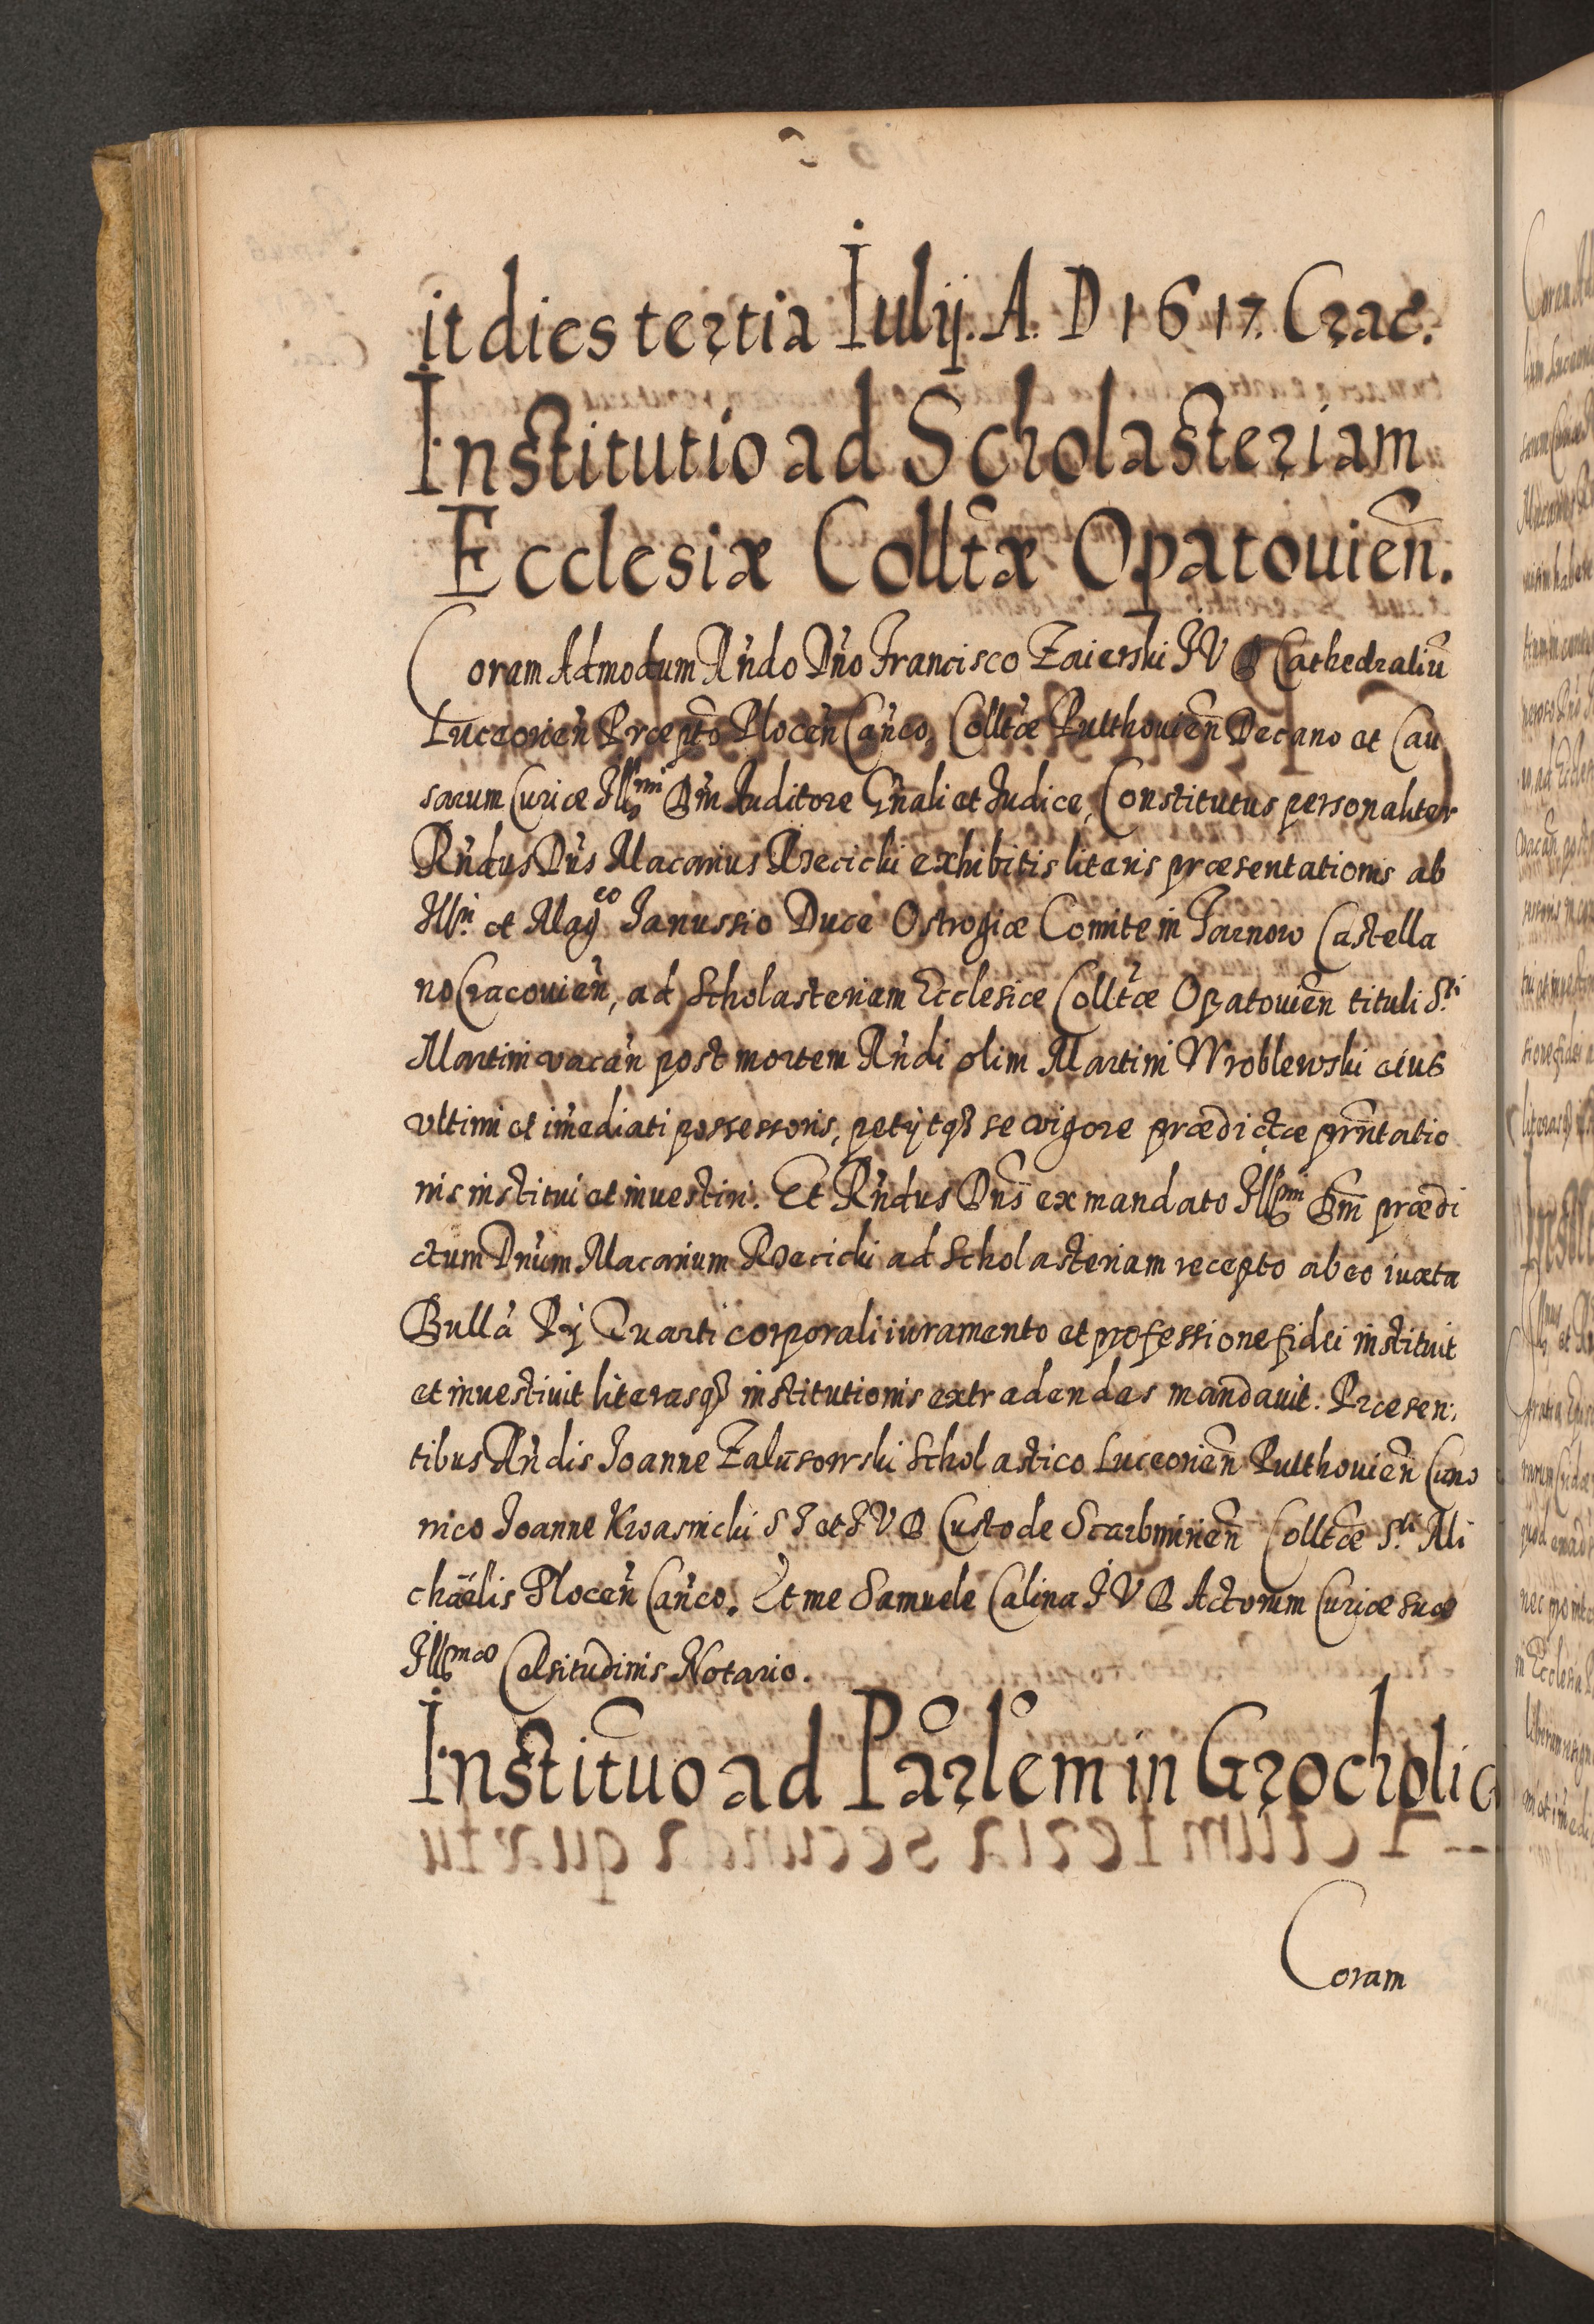 it dies tertia Iulij. A. D 1617. Crac.
Institutio ad Scholasteriam
Ecclesiæ Colltæ Opatouien̄.
Coram Admodum Rn̄do Dn̄o Francisco Zaierski I V D Cathedraliū
Luceorien̄ Præpto Plocen̄ Can̄co, Colltæ Pulthouien̄ Decano et Cau
sarum Curiæ Illmi Dni Auditore Gn̄ali et Iudice, Constitutus personaliter
Rn̄dus Dn̄s Macarius Rzecicki exhibitis literis præsentationis ab
Illri et Magco Ianussio Duce Ostrogiæ Comite in Tarnow Castella
no Cracouien̄, ad Scholasteriam Ecclesiæ Colltæ Opatouien̄ tituli Sti
Martini vacan̄ post mortem Rn̄di olim Martini Wroblewski eius
vltimi et im̄ediati possessoris, petijtqȝ se vigore prædictæ prn̄tatio
nis institui et inuestiri. Et Rn̄dus Dn̄s ex mandato Illmi Dni prædi
ctum Dnūm Macarium Rzecicki ad Scholasteriam recepto ab eo iuxta
Bullā Pij Quarti corporali iuramento et professione fidei instituit
et inuestiuit literasqȝ institutionis extradendas mandauit. Præsen:
tibus Rn̄dis Ioanne Zalusowski Scholastico Luceorien̄ Pulthouien̄ Cano
nico Ioanne Kwasnicki S T et I V D Custode Scarbmirien̄ Colltæ Sti Mi
chaëlis Plocen̄ Can̄co. Et me Samuele Calina I V D Actorum Curiæ Suæ
Illmæ Celsitudinis Notario.
Institūo ad Parlēm in Grocholi
Coram